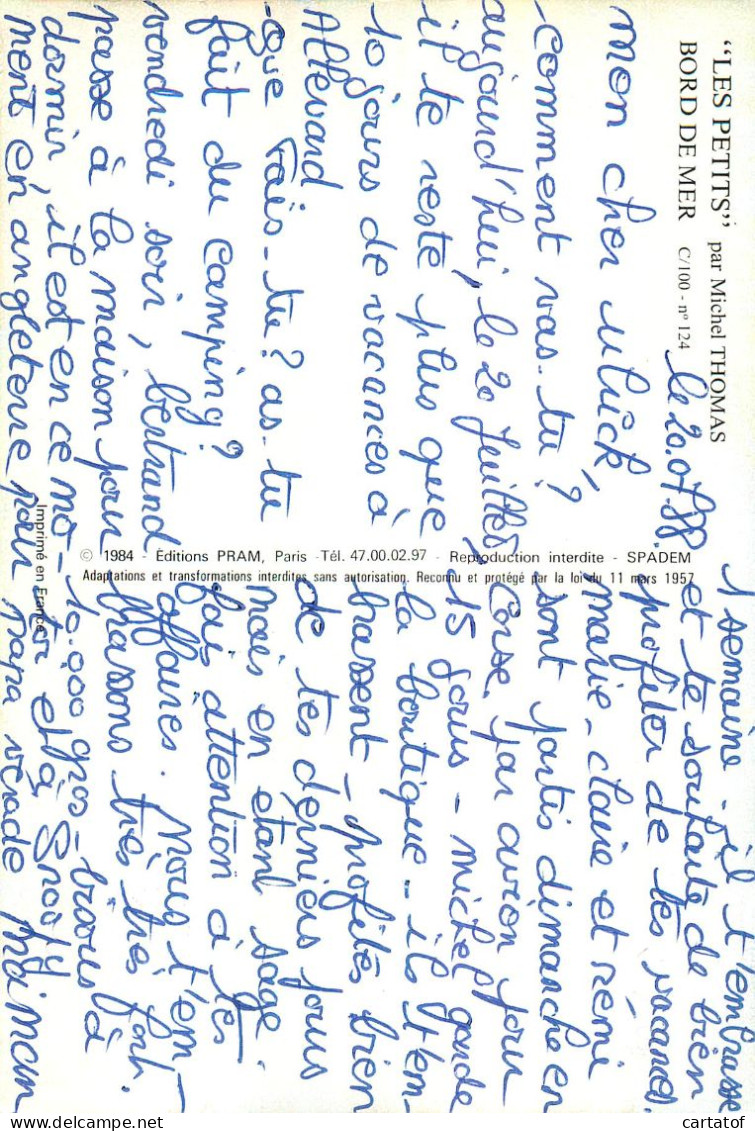 "LES PETITS" par Michel THOMAS
BORD DE MER C/100 - nº 124
le 20.07.88.
mon cher uluck,
comment vas-tu?
aujourd'hui, le 20 Juillet,
il te reste plus que
10 jours de vacances à
Allevard
que fais-tu? as-tu
fait du camping?
vendredi soir, bertrand
passe à la maison pour
dormir, il est en ce mo-
ment en angleterre pour
1 semaine - il t'embrasse
et te souhaite de bien
profiter de tes vacances.
marie-claire et rémi
sont partis dimanche en
Corse, par avion pour
15 jours - michel garde
la boutique - ils t'em-
brassent - profites bien
de tes derniers jours
mais en etant sage.
fais attention à tes
affaires. Nous t'em-
brassons très très fort.
10.000 gros-bisous à
toi et à Snoopy
papa maman
© 1984 - Éditions PRAM, Paris - Tél. 47.00.02.97 - Reproduction interdite - SPADEM
Adaptations et transformations interdites sans autorisation. Reconnu et protégé par la loi du 11 mars 1957
Imprimé en France
cartatof